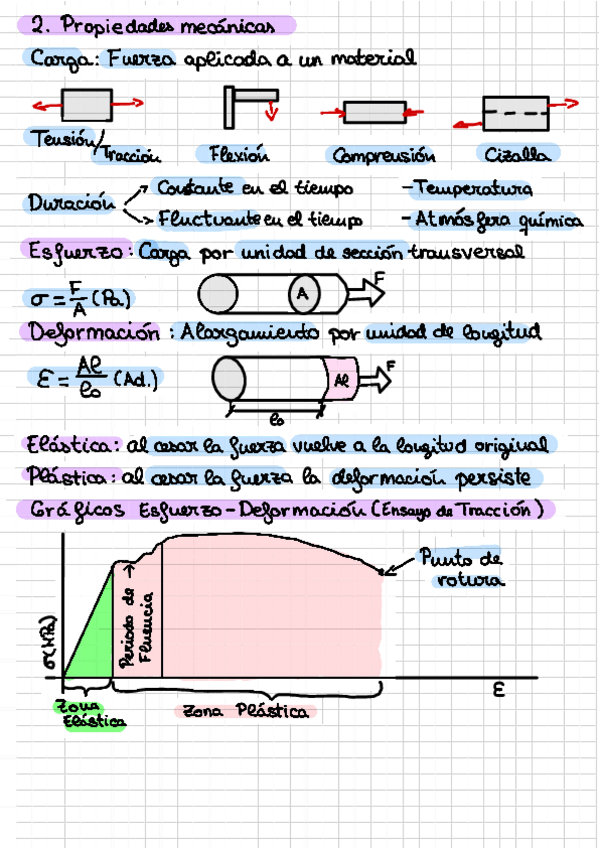 2. Propiedades mecánicas
Carga: Fuerza aplicada a un material
Tensión/Tracción
Flexión
Comprensión
Cizalla
Duración
Constante en el tiempo
Fluctuante en el tiempo
-Temperatura
-Atmósfera química
Esfuerzo: Carga por unidad de sección transversal
σ = F/A (Pa)
A
F
Deformación: Alargamiento por unidad de longitud
ε = Δl/l₀ (Ad.)
Δl
F
l₀
Elástica: al cesar la fuerza vuelve a la longitud original
Plástica: al cesar la fuerza la deformación persiste
Gráficos Esfuerzo-Deformación (Ensayo de Tracción)
Punto de
rotura
σ(MPa)
Periodo de
Fluencia
ε
Zona
Elástica
Zona Plástica